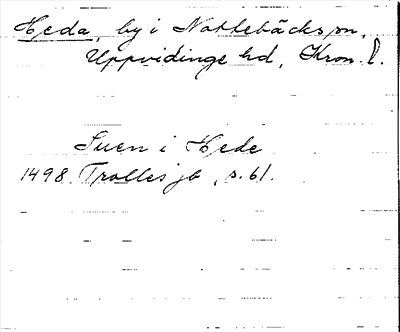 Heda, by i Nottebäcks sn,
Uppvidinge hd, Kron. l.
Suen i Hede
1498. Trolles jb, s. 61.